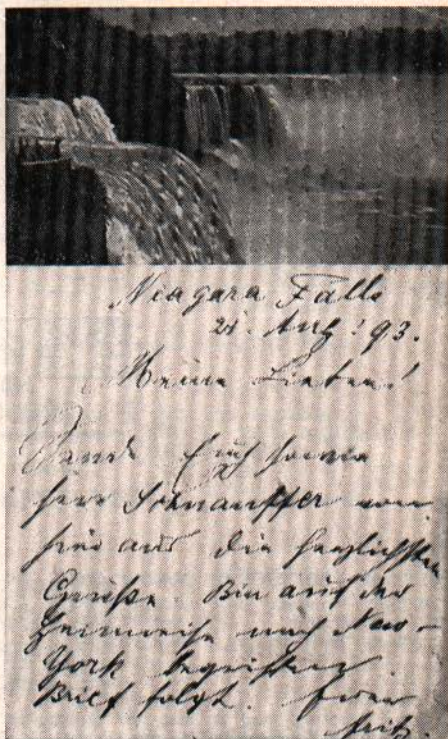 Niagara Falls
21. Aug. 93.
Meine Lieben!
Sende Euch sowie
Herr Schnauffer von
hier aus die herzlichsten
Grüße. Bin auf der
Heimreise nach New-
York begriffen.
Brief folgt. Euer
Fritz.